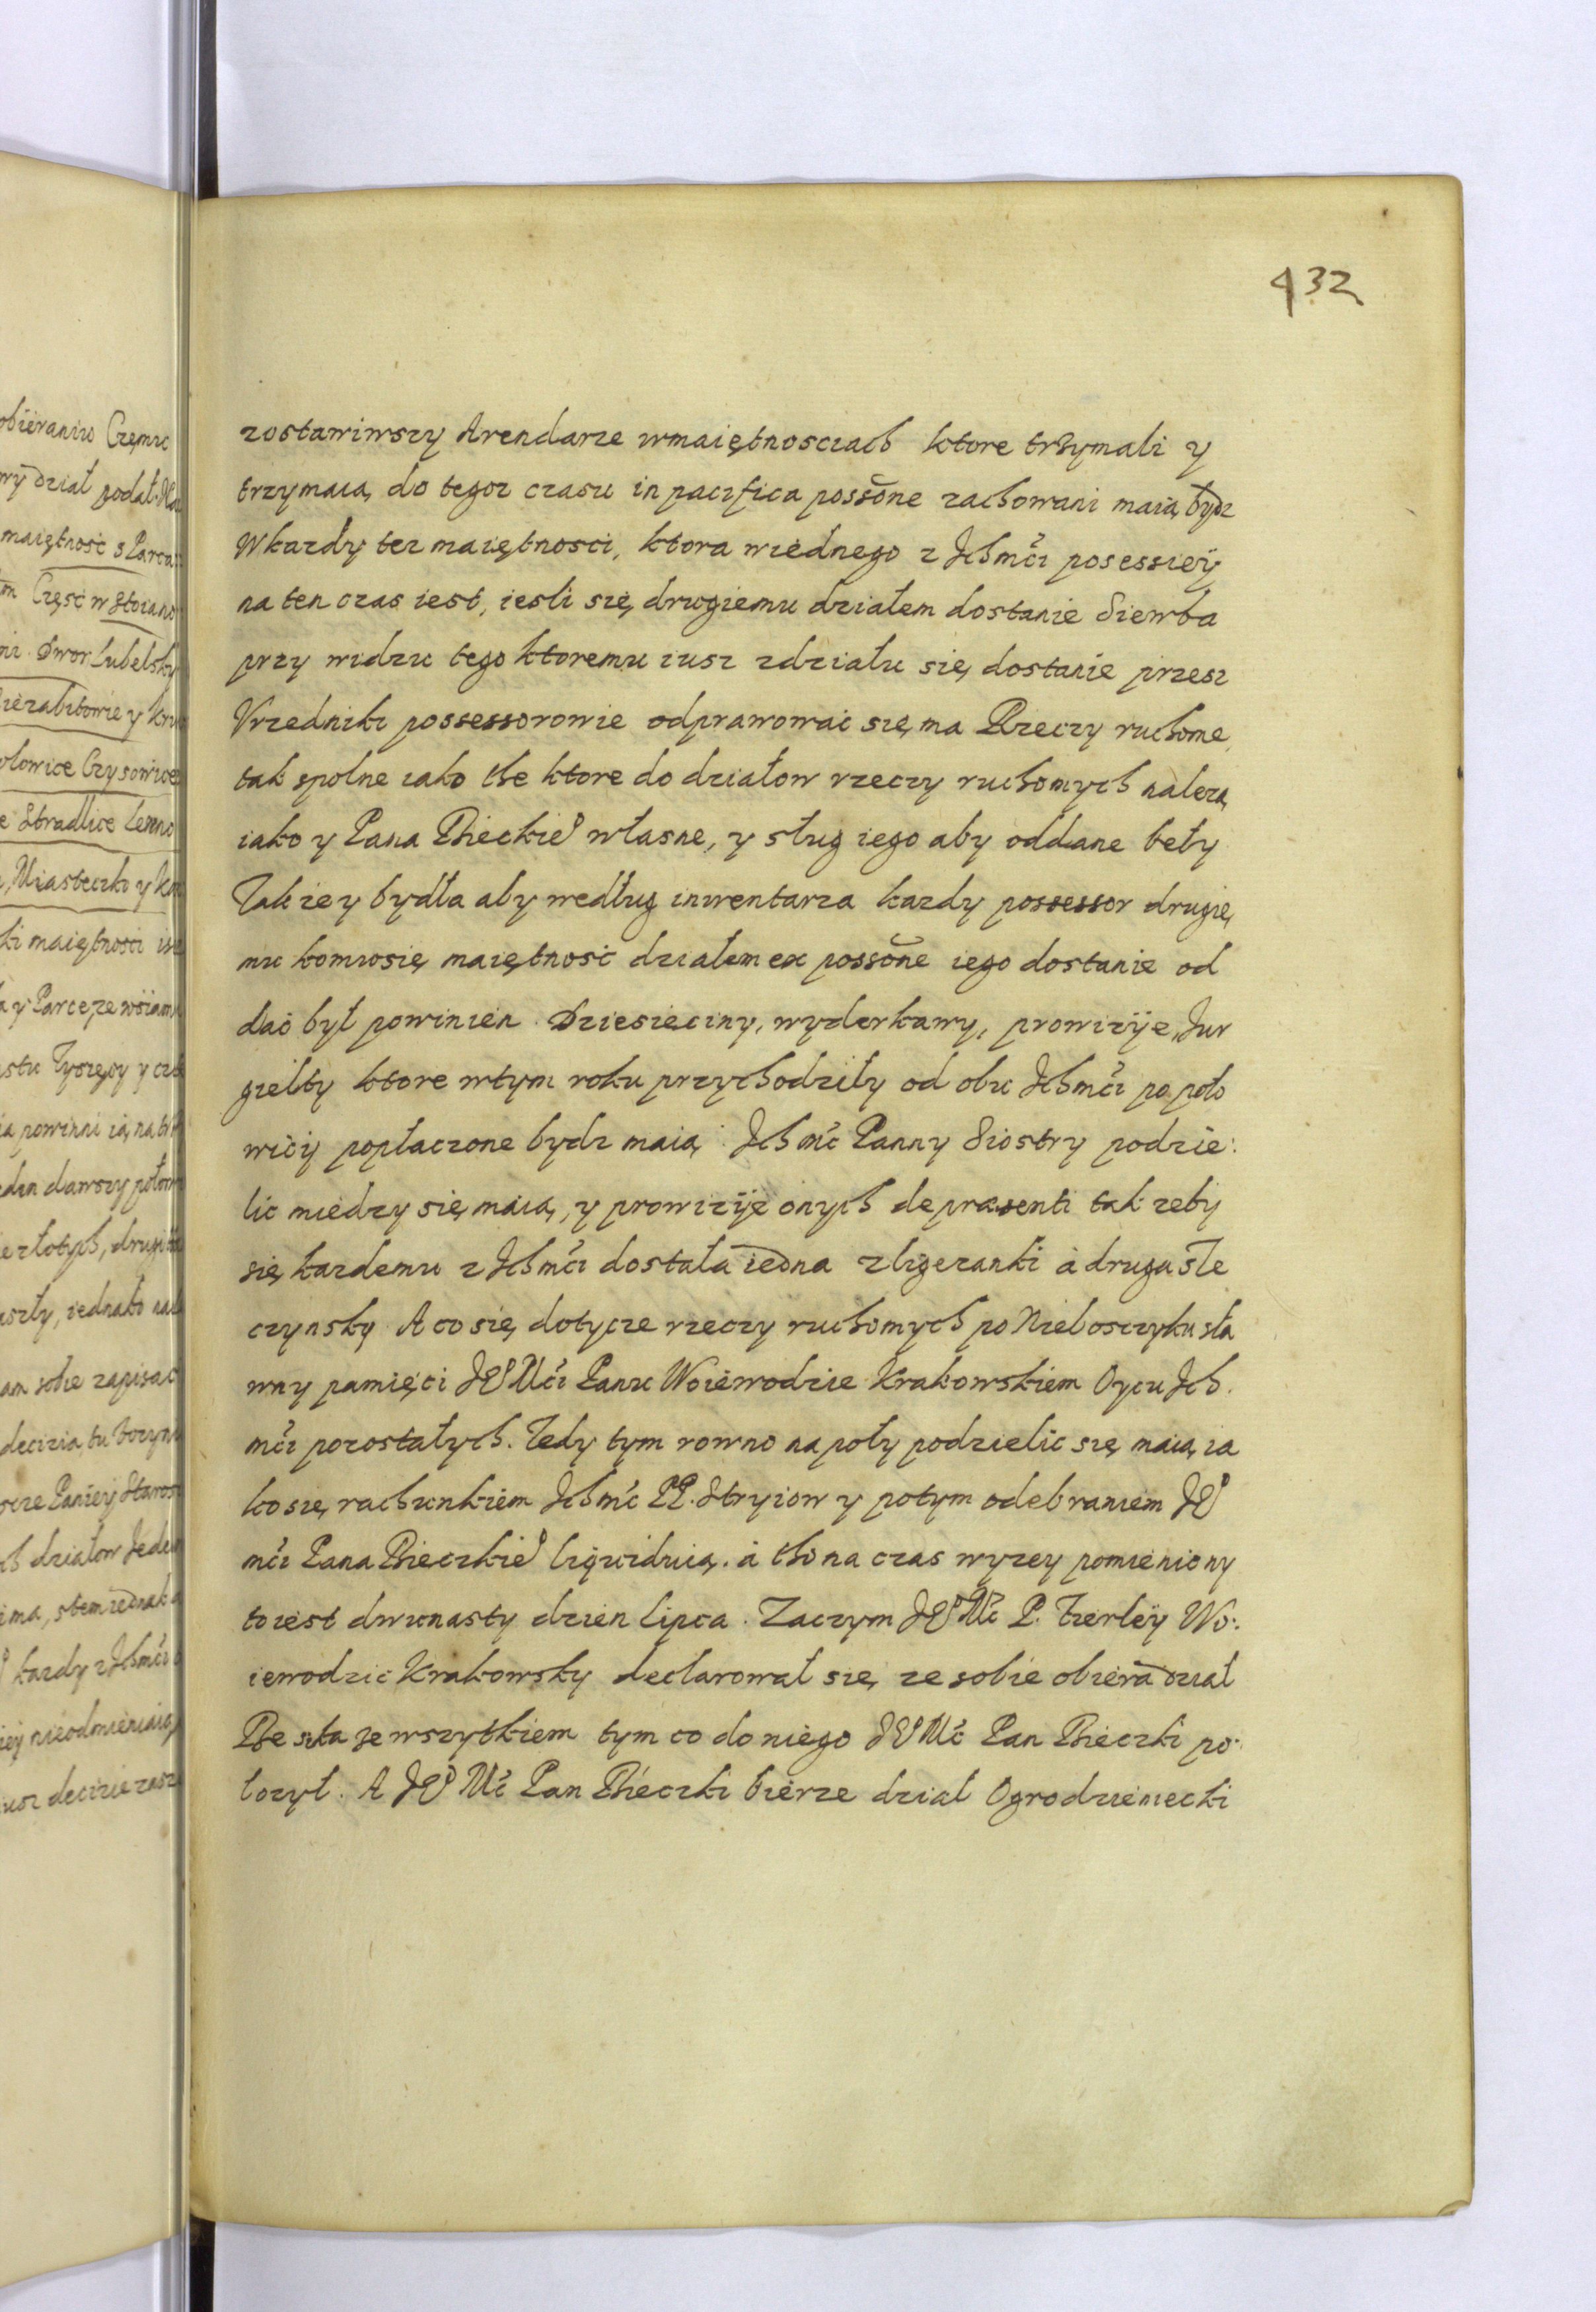 432
zostawiwszy Arendarze wmaiętnosciach ktore trzymali y
trzymaią, do tegoz czasu in pacifica possõne zachowani maią bydz
Wkazdy tez maiętnosci, ktora wiednego z Ichmći posessiey
na ten czas iest, iesli się drugiemu działem dostanie Siewba
przy widzu tego ktoremu iusz zdziału się dostanie przesz
Vrzedniki possessorowie odprawowac się ma Rzeczy ruchome
tak spolne iako the ktore do działow rzeczy ruchomych nalezą
iako y Pana Bieckieo własne, y sług iego aby oddane beły
Takze y bydła aby według inwentarza kazdy possessor drugie
mu komusię maiętność działem ex possõne iego dostanie od
dać był powinien. Dziesieciny, wyderkawy, prowizije, Jur
gielty ktore wtym roku przychodziły od obu Ichmći po poło
wicy popłaczone bydz maią. Ich mć Panny Siostry podzie:
lic miedzy się maią, y prowizije onych de præsenti tak zeby
się kazdemu z Ichmći dostała iedna zligezanki à druga sTe
czynsky A co się dotycze rzeczy ruchomych po Nieboszczyku sła
wny pamięci JEo Mći Panu Woiewodzie Krakowskiem Oycu Ich.
mći pozostałych. Tedy tym rowno na poły podzielic się maią ia
ko się rachunkiem Ichmć PP. Stryiow y potym odebraniem JEo
mći Pana Bieczkieo liquiduią. à tho na czas wyzey pomieniony
to iest dwunasty dzien Lipca. Zaczym JEo Mć P. Fierley Wo:
iewodzic Krakowsky declarował się ze sobie obiera dział
Be sta ze wszytkiem tym co do niego JEo Mć Pan Bieczki po:
łozył. A JEo Mć Pan Bieczki bierze dział Ogrodzieniecki